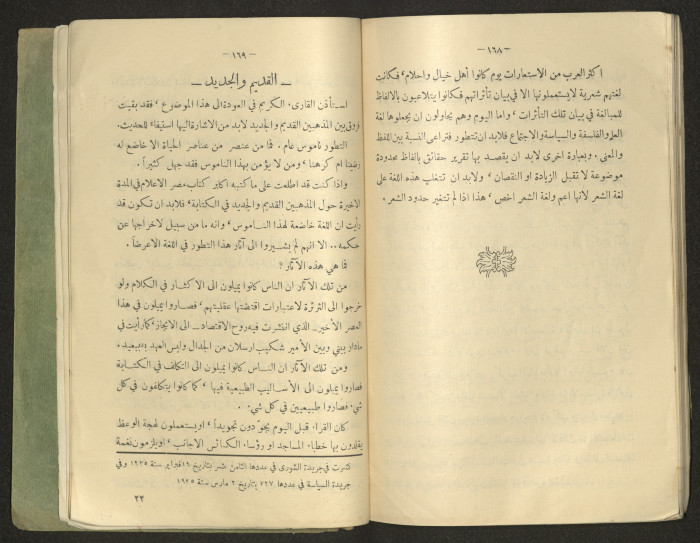 — ١٦٨ —
اكثر العرب من الاستعارات يوم كانوا أهل خيال واحلام ، فكانت
لغتهم شعرية لايستعملونها الا في بيان تأثراتهم فكانوا يتلاعبون بالالفاظ
للمبالغة في بيان تلك التأثرات ، واما اليوم وهم يحاولون ان يجعلوها لغة
العلم والفلسفة والسياسة والاجتماع فلابد ان تتطور فتراعى النسبة بين اللفظ
والمعنى . وبعبارة اخرى لابد ان يقصد بها تقرير حقائق بالفاظ محدودة
موضوعة لا تقبل الزيادة او النقصان ، ولابد ان تتغلب هذه اللغة على
لغة الشعر لانها اعم ولغة الشعر اخص ، هذا اذا لم تتغير حدود الشعر .
— ١٦٩ —
— القديم والجديد —
استأذن القارىء الكريم في العودة الى هذا الموضوع ، فقد بقيت
فروق بين المذهبين القديم والجديد لابد من الاشارة اليها استيفاء للحديث.
التطور ناموس عام . فما من عنصر من عناصر الحياة الا خاضع له
رضينا ام كرهنا ، ومن لا يؤمن بهذا الناموس فقد جهل كثيراً .
واذا كنت قد اطلعت على ما كتبه اكابر كتاب مصر الاعلام في المدة
الاخيرة حول المذهبين القديم والجديد في الكتابة ، فلابد ان تكون قد
رأيت ان اللغة خاضعة لهذا الناموس ، وانه ما من سبيل لاخراجها عن
حكمه .. الا انهم لم يشيروا الى آثار هذا التطور في اللغة الا عرضاً .
فما هي هذه الآثار ؟
من تلك الآثار ان الناس كانوا يميلون الى الاكثار في الكلام ولو
خرجوا الى الثرثرة لاعتبارات اقتضتها عقليتهم ، فصاروا يميلون في هذا
العصر الأخير ـ الذي انتشرت فيه روح الاقتصاد ـ الى الايجاز ، كما رأيت في
مادار بيني وبين الأمير شكيب ارسلان من الجدال وليس العهد ببعيد .
ومن تلك الآثار ان الناس كانوا يميلون الى التكلف في الكتابة
فصاروا يميلون الى الأساليب الطبيعية فيها ، كما كانوا يتكلفون في كل
شيء فصاروا طبيعيين في كل شيء .
كان القراء قبل اليوم يجوّدون تجويداً ، او يستعملون لهجة الوعظ
يقلدون بها خطباء المساجد او رؤساء الكنائس الاجانب ، او يلزمون نغمة
نشرت في جريدة الشورى في عددها الثامن عشر بتاريخ ١٢ فبراير سنة ١٩٢٥ وفي
جريدة السياسة في عددها ٧٢٧ بتاريخ ٢ مارس سنة ١٩٢٥
٢٢